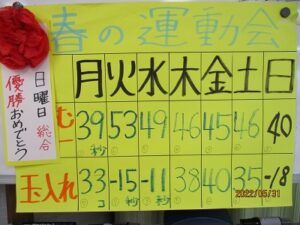 春の運動会
日曜日 総合
優勝おめでとう
月 火 水 木 金 土 日
む 39秒 53 49 46 45 46 40
玉入れ 33コ -15 -11 38 40 35 -18
2022/05/31